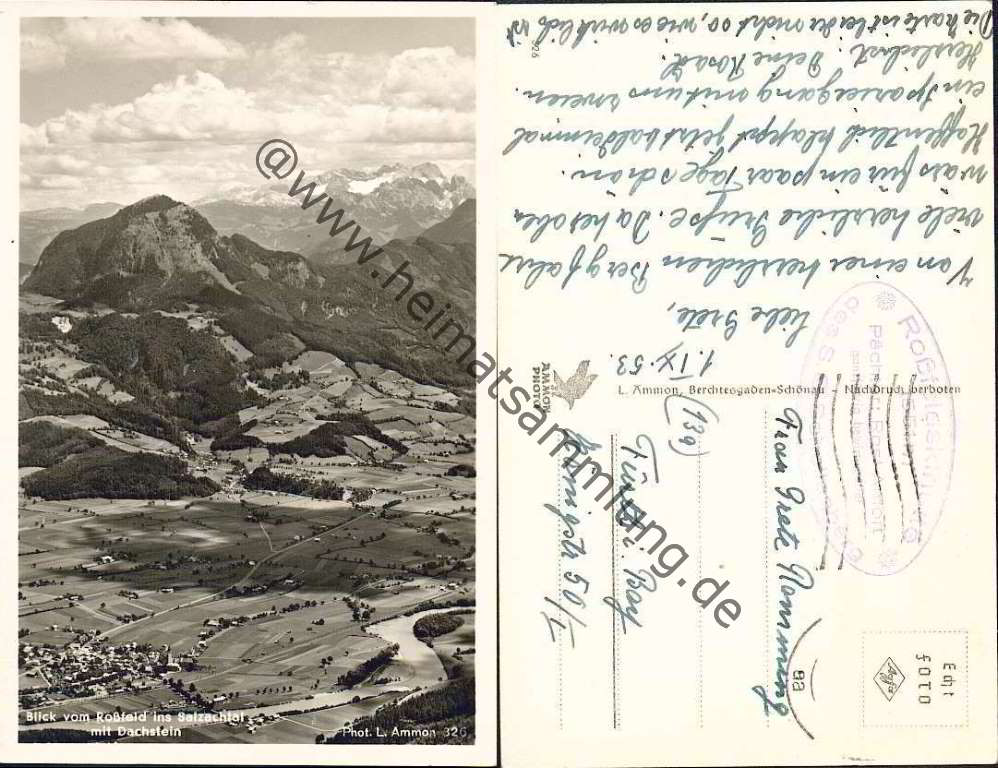 Blick vom Roßfeld ins Salzachtal
mit Dachstein
Phot. L. Ammon 326
@www.heimatsammlung.de
1.IX.53.
Liebe Grete,
Von einer herrlichen Bergfahrt
viele herrliche Grüße. Da heroben
wärs für ein paar Tage schön.
Hoffentlich klappt jetzt bald einmal
ein Spaziergang mit uns zweien.
Herzlichst. Deine Rosa
Die Karte ist leider nicht so, wie es wirklich ist
326
AMMON
PHOTO
L. Ammon, Berchtesgaden-Schönau - Nachdruck verboten
Frau Gretl
(13a)
Fürth i. Bay
50/I
Echt
FOTO
Agfa